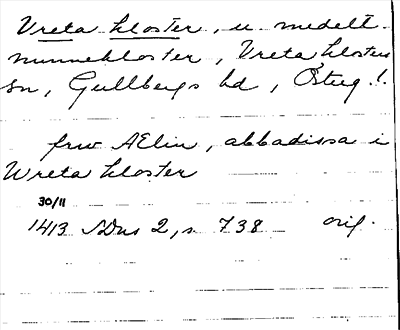 Vreta kloster, u. medelt.
nunnekloster, Vreta klosters
sn, Gullbergs hd, Östug.l.
frw AElin, abbadissa i
Wreta kloster
30/11
1413 SDns 2, s 738 orig.